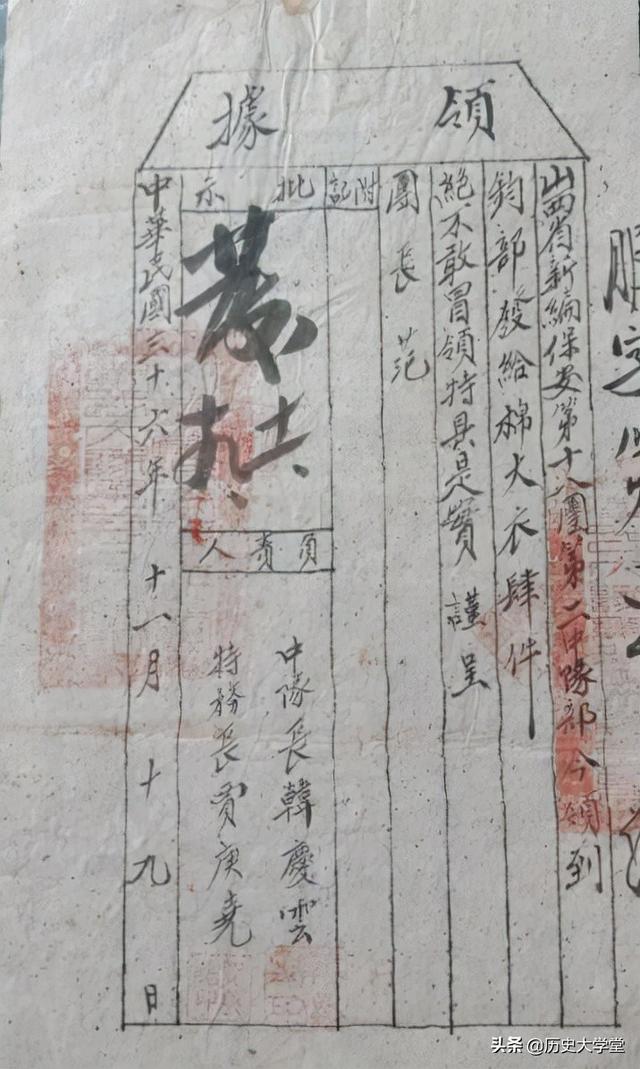 領據
山西省新編保安第十八團第二中隊部今領到
鈞部發給棉大衣肆件
絕不敢冒領特具是實 謹呈
團長 范
附記
批示
發
十一
九
負責人
中隊長韓慶雲
特務長賈庚堯
中華民國三十六年十一月十九日
头条 @历史大学堂